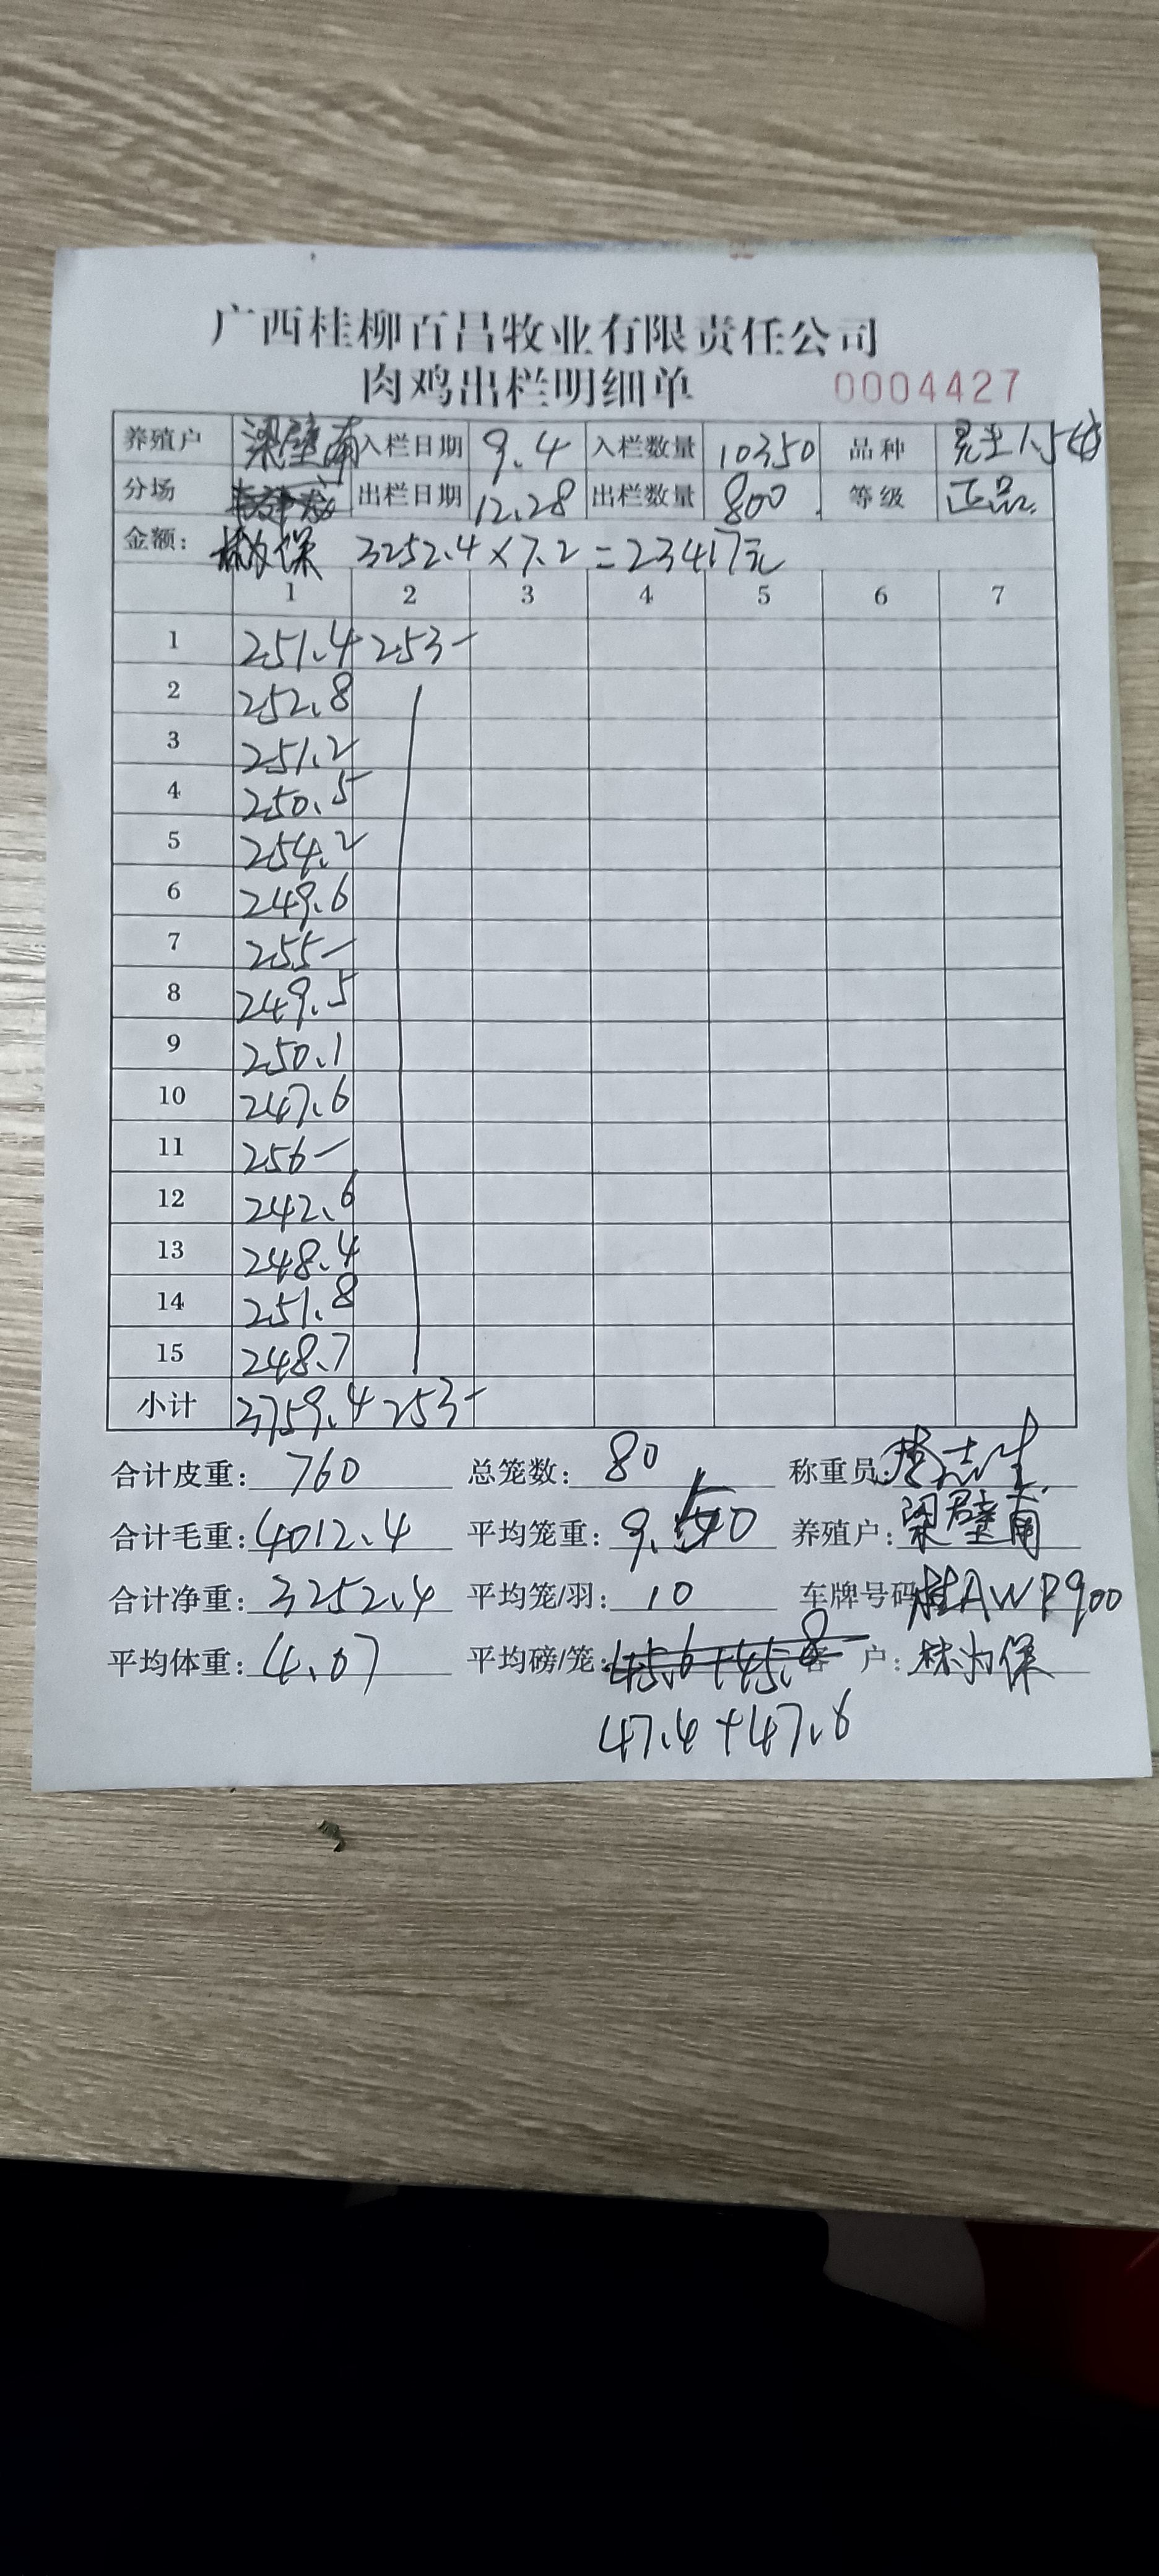 广西桂柳百昌牧业有限责任公司
肉鸡出栏明细单 0004427
养殖户 梁壁南 入栏日期 9.4 入栏数量 10350 品种 1.5
分场 出栏日期 12.28 出栏数量 800 等级 正品
金额: 林为保 3252.4×7.2=23417元
1 2 3 4 5 6 7
1 251.4 253-
2 252.8
3 251.2
4 250.5
5 254.2
6 249.6
7 255-
8 249.5
9 250.1
10 247.6
11 256-
12 242.6
13 248.4
14 251.8
15 248.7
小计 3759.4 253-
合计皮重: 760 总笼数: 80 称重员:
合计毛重: 4012.4 平均笼重: 9.50 养殖户: 梁壁南
合计净重: 3252.4 平均笼/羽: 10 车牌号码 桂AWP900
平均体重: 4.07 平均磅/笼: 45.6+45.8 客户: 林为保
47.4+47.6